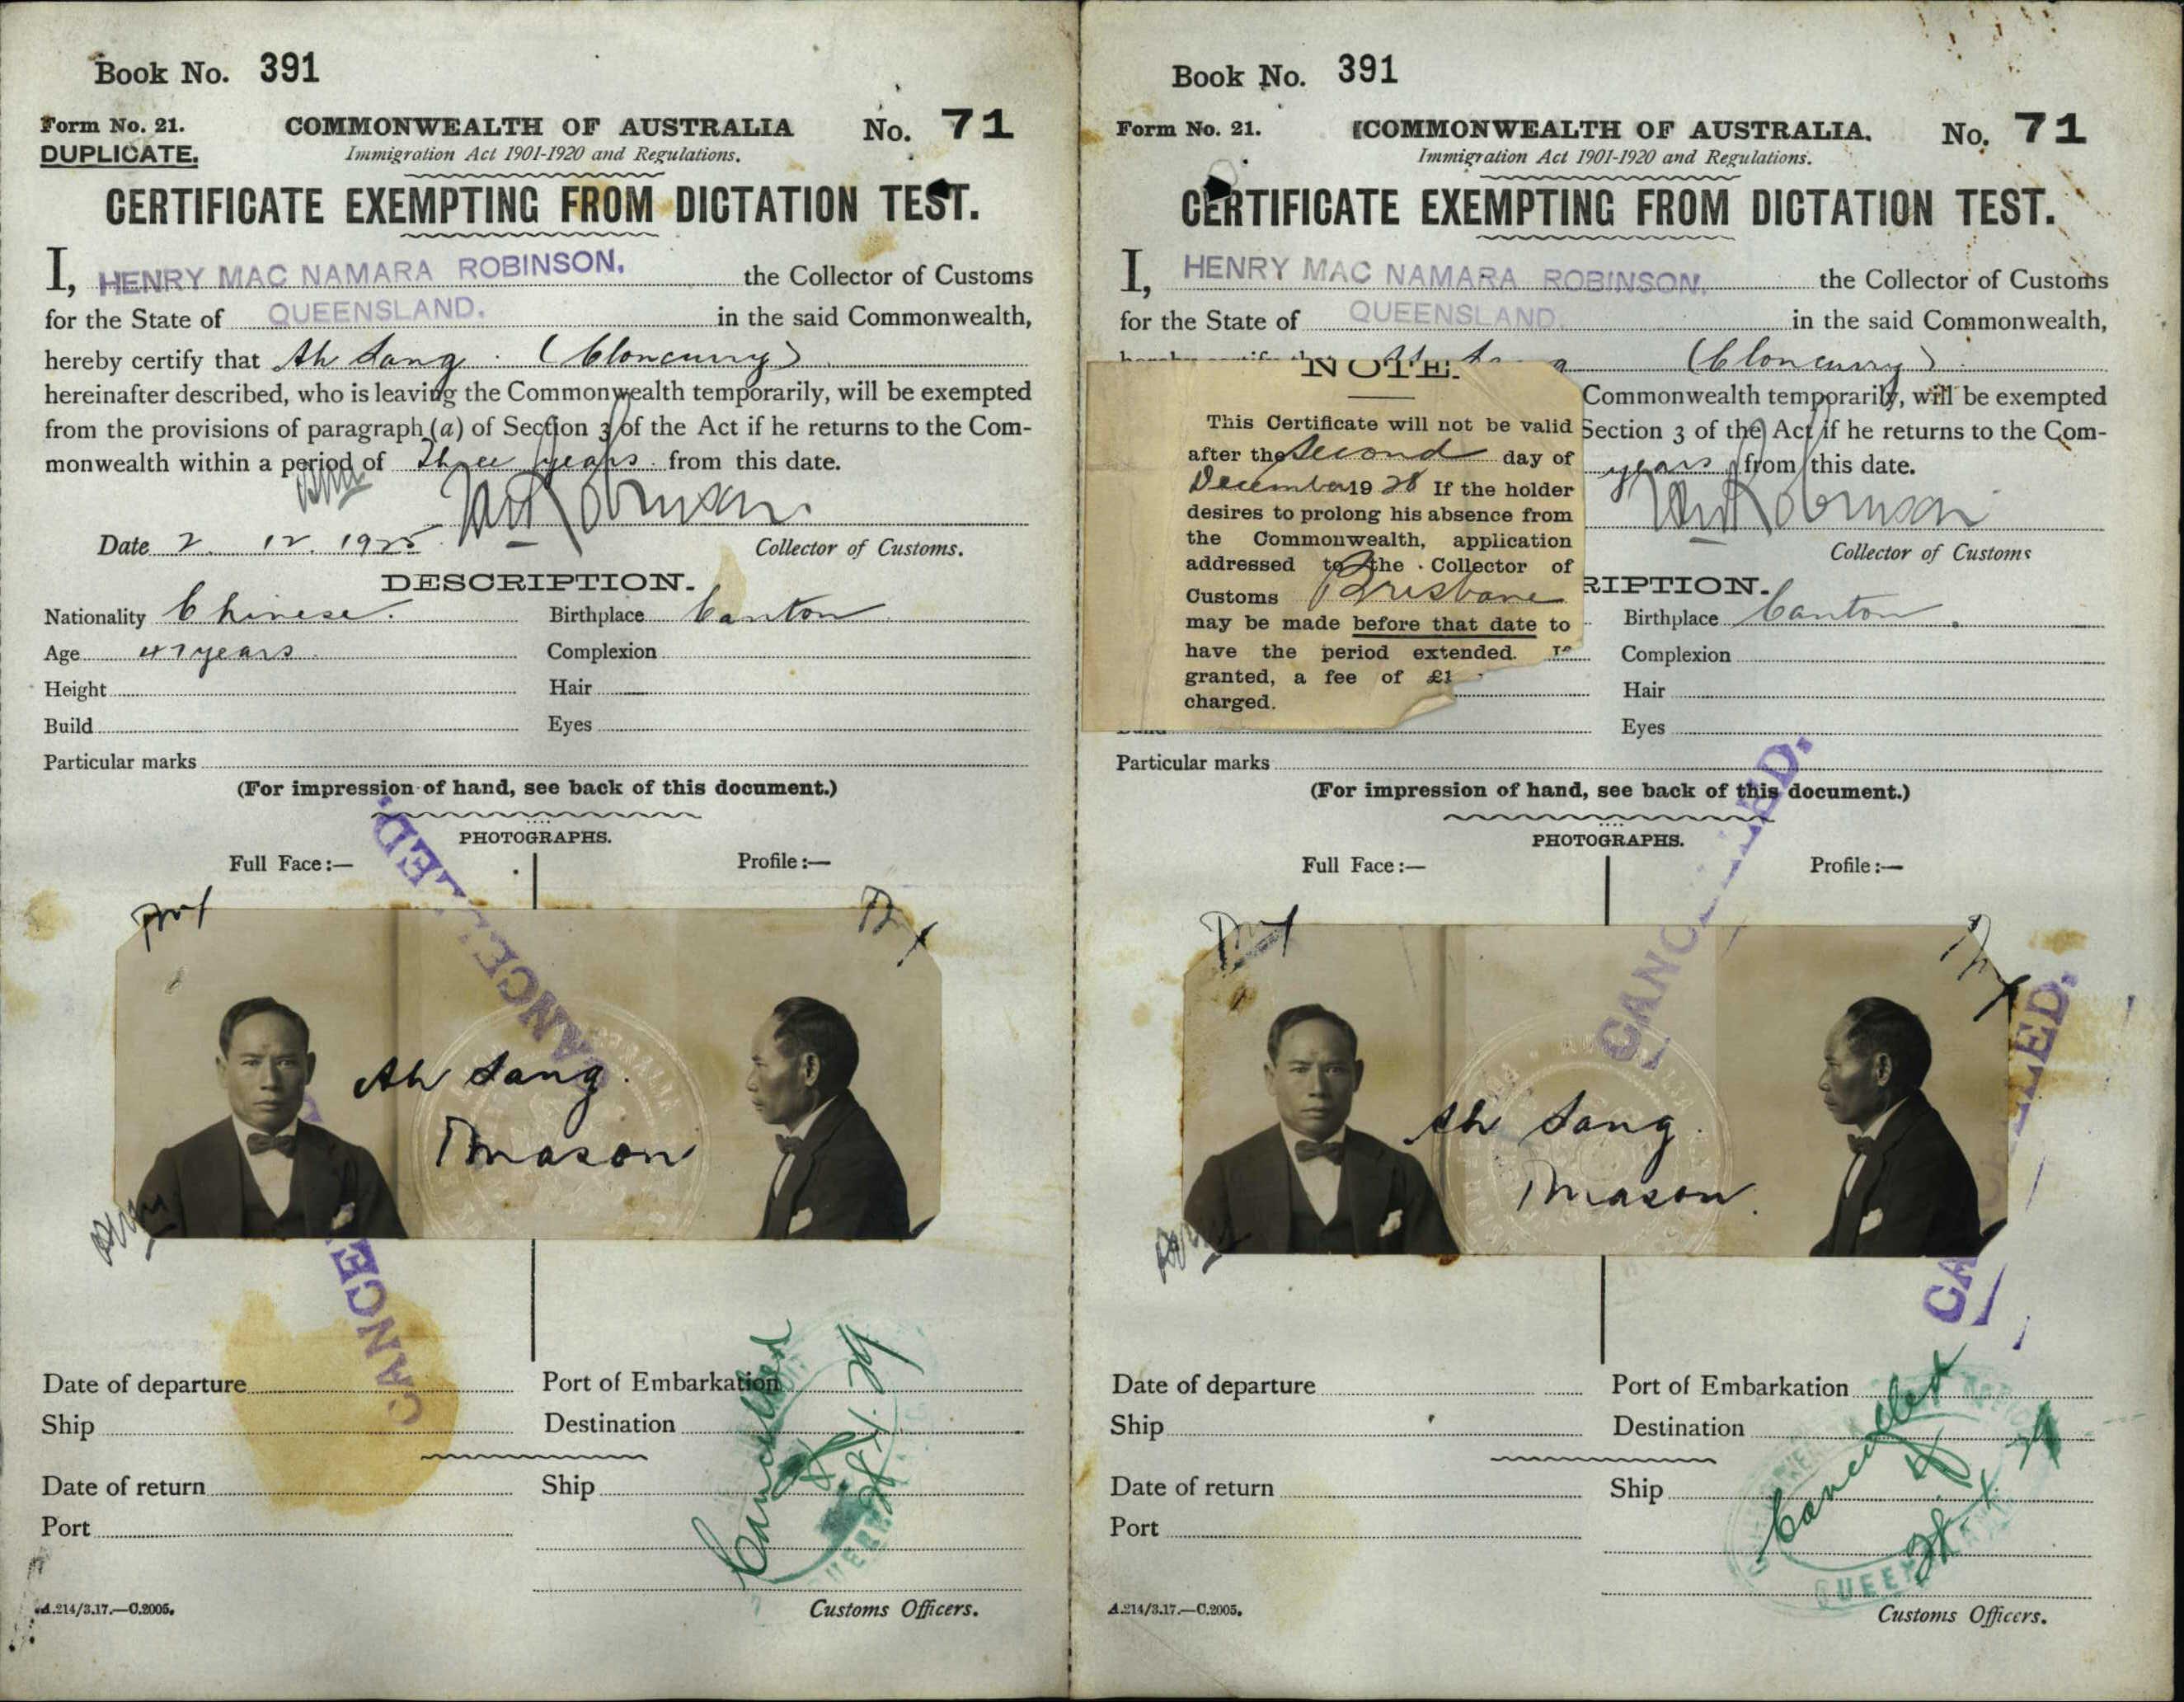 Book No. 391
Form No. 21.
DUPLICATE.
COMMONWEALTH OF AUSTRALIA
No. 71
Immigration Act 1901-1920 and Regulations.
CERTIFICATE EXEMPTING FROM DICTATION TEST.
I, HENRY MAC NAMARA ROBINSON. the Collector of Customs
for the State of QUEENSLAND. in the said Commonwealth,
hereby certify that Ah Sang. (Cloncurry)
hereinafter described, who is leaving the Commonwealth temporarily, will be exempted
from the provisions of paragraph (a) of Section 3 of the Act if he returns to the Com-
monwealth within a period of Three years from this date.
Date 2. 12. 1925
Collector of Customs.
DESCRIPTION.
Nationality Chinese. Birthplace Canton
Age 47 years Complexion
Height Hair
Build Eyes
Particular marks
(For impression of hand, see back of this document.)
PHOTOGRAPHS.
Full Face:— Profile:—
CANCELLED.
Ah Sang.
Mason
Date of departure Port of Embarkation
Ship Destination
Date of return Ship
Port
Cancelled
A.214/3.17.—C.2005.
Customs Officers.
Book No. 391
Form No. 21.
COMMONWEALTH OF AUSTRALIA.
No. 71
Immigration Act 1901-1920 and Regulations.
CERTIFICATE EXEMPTING FROM DICTATION TEST.
I, HENRY MAC NAMARA ROBINSON. the Collector of Customs
for the State of QUEENSLAND. in the said Commonwealth,
(Cloncurry)
Commonwealth temporarily, will be exempted
Section 3 of the Act if he returns to the Com-
years from this date.
Collector of Customs
NOTE.
This Certificate will not be valid
after the Second day of
December 1928 If the holder
desires to prolong his absence from
the Commonwealth, application
addressed to the Collector of
Customs Brisbane
may be made before that date to
have the period extended.
granted, a fee of £1
charged.
RIPTION.
Birthplace Canton.
Complexion
Hair
Eyes
Particular marks
(For impression of hand, see back of this document.)
PHOTOGRAPHS.
Full Face:— Profile:—
Ah Sang.
Mason.
Date of departure Port of Embarkation
Ship Destination
Date of return Ship
Port
Cancelled
A.214/3.17.—C.2005.
Customs Officers.